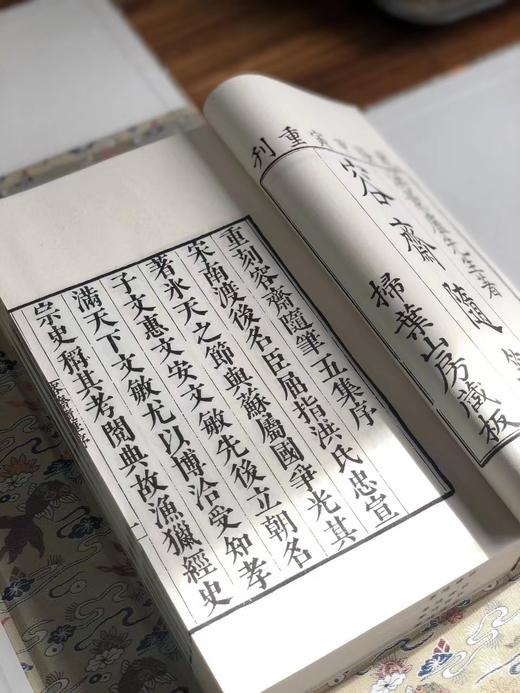 重刊
容齋隨筆
掃葉山房藏板
重刻容齋隨筆五集序
宋南渡後名臣屈指洪氏忠宣
著氷天之節與蘇屬國爭光其
子文惠文安文敏先後立朝名
滿天下文敏尤以博洽受知孝
宗史稱其考閱典故漁獵經史